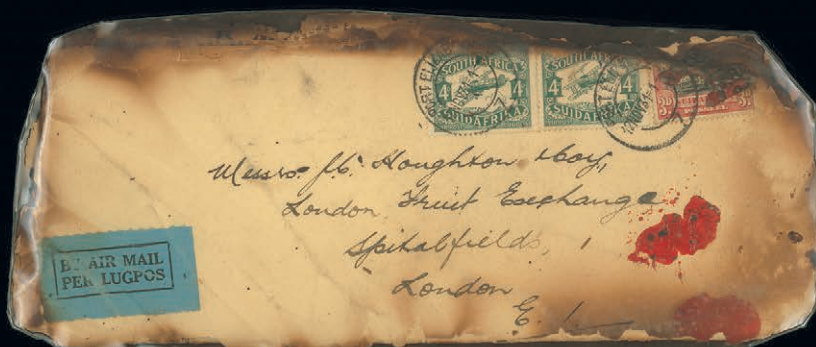 SOUTH AFRICA
4 4
SUIDAFRIKA
SOUTH AFRICA
4 4
SUIDAFRIKA
3D 3D
PORT ELIZ
NOV 31
Messrs. Houghton
London Fruit Exchange
Spitalfields,
London
E. 1
BY AIR MAIL
PER LUGPOS